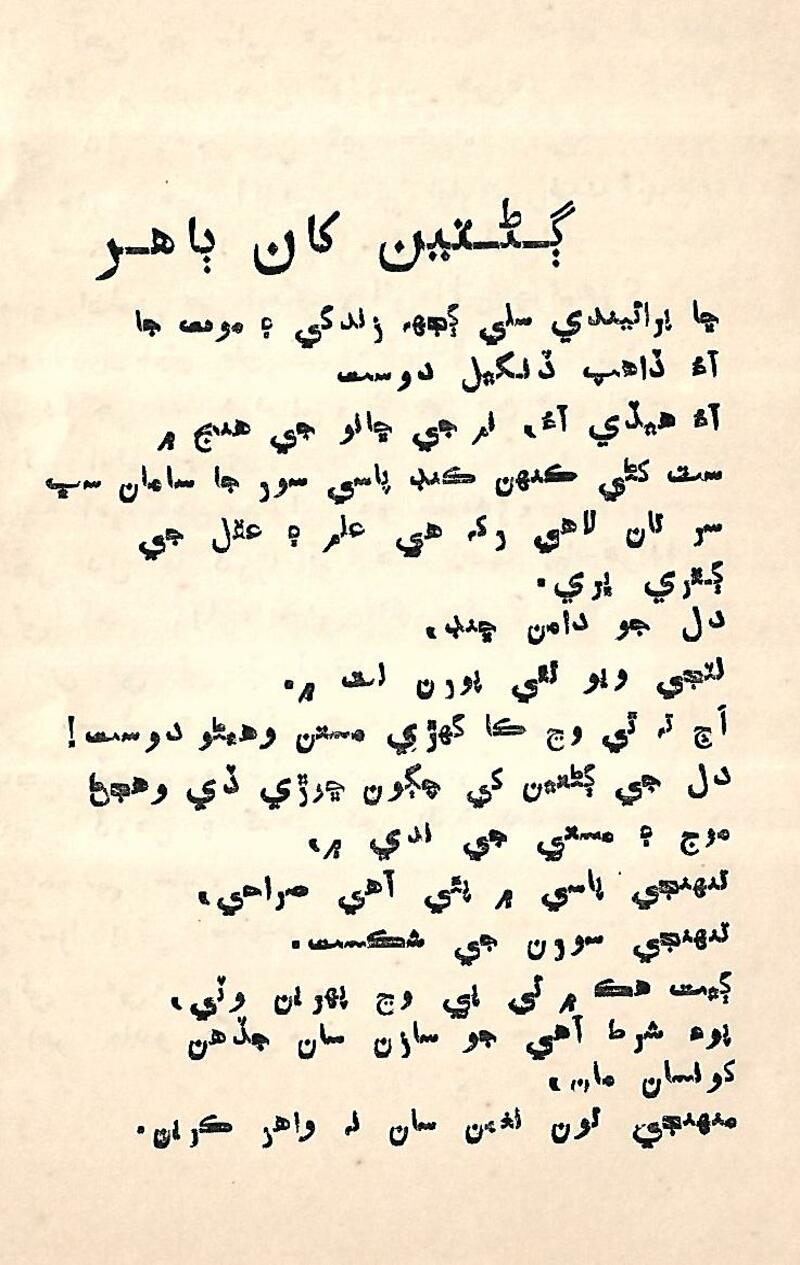 ڳڻتين کان ٻاهر
ڇا پرائيندي سلي ڳجهه زندگي ۽ موت جا
آءُ ڏاهپ ڏنگيل دوست
آءُ هيڏي آءُ، نم جي ڇانو جي هنج ۾
ست کڻي ڪنهن ڪنڊ پاسي سور جا سامان سڀ
سر تان لاهي رک هي علم ۽ عقل جي
ڳٺڙي ڀري.
دل جو دامن ڇنڊ،
لٽجي ويو ٿئي ٻورن اٽ ۾.
اڄ ته ٿي وڃ ڪا گهڙي مستن وهيڻو دوست!
دل جي ڳڻتين کي ڇڳون ڇورڙي ڏي وهڃڻ
موج ۽ مستي جي ندي ۾،
تنهنجي پاسي ۾ پئي آهي صراحي،
تنهنجي سورن جي شڪست.
ڳيت هڪ ۾ ئي پي وڃ ڀهريان وٽي،
پوءِ شرط آهي جو سازن سان جڏهن
کولسان مان،
منهنجي تون نغمن سان نه واهر ڪرين.